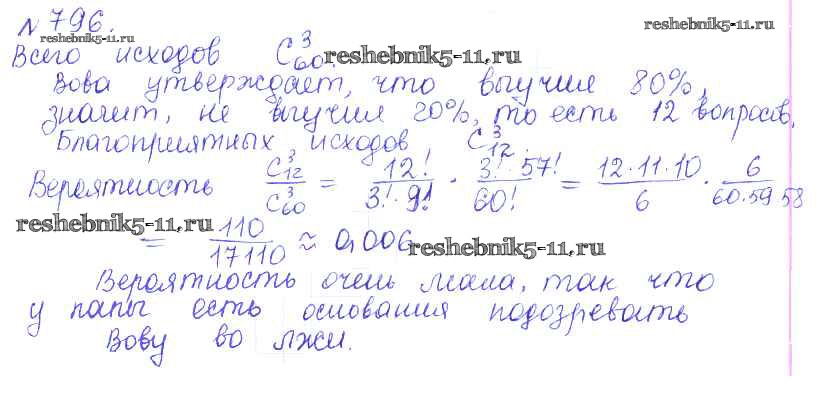 № 796.
reshebnik5-11.ru
reshebnik5-11.ru
Всего исходов C³₆₀. reshebnik5-11.ru
Вова утверждает, что выучил 80%,
значит, не выучил 20%, то есть 12 вопросов.
Благоприятных исходов C³₁₂.
Вероятность C³₁₂/C³₆₀ = 12!/(3!·9!) · (3!·57!)/60! = (12·11·10)/6 · 6/(60·59·58)
reshebnik5-11.ru = 110/17110 ≈ 0,006 reshebnik5-11.ru
Вероятность очень мала, так что
у папы есть основания подозревать
Вову во лжи.